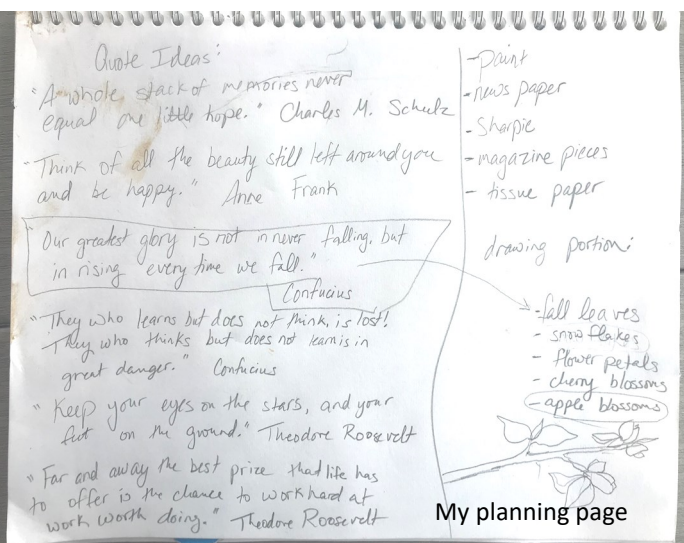 Quote Ideas:
"A whole stack of memories never
equal one little hope." Charles M. Schulz
"Think of all the beauty still left around you
and be happy." Anne Frank
"Our greatest glory is not in never falling, but
in rising every time we fall."
Confucius
"They who learns but does not think, is lost!
They who thinks but does not learn is in
great danger." Confucius
"Keep your eyes on the stars, and your
feet on the ground." Theodore Roosevelt
"Far and away the best prize that life has
to offer is the chance to work hard at
work worth doing." Theodore Roosevelt
- paint
- news paper
- Sharpie
- magazine pieces
- tissue paper
drawing portion:
- fall leaves
- snow flakes
- flower petals
- cherry blossoms
- apple blossoms
My planning page